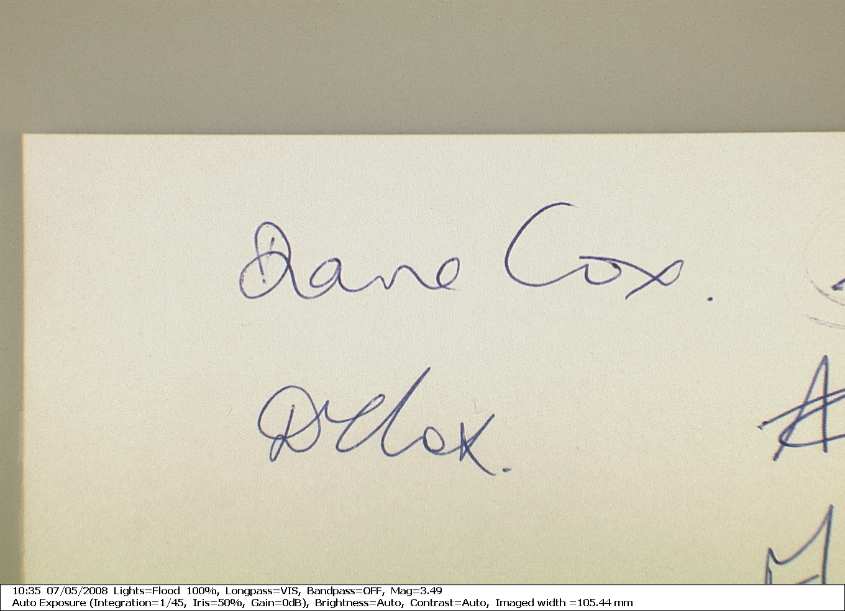 Diane Cox.
10:35 07/05/2008 Lights=Flood 100%, Longpass=VIS, Bandpass=OFF, Mag=3.49
Auto Exposure (Integration=1/45, Iris=50%, Gain=0dB), Brightness=Auto, Contrast=Auto, Imaged width =105.44 mm